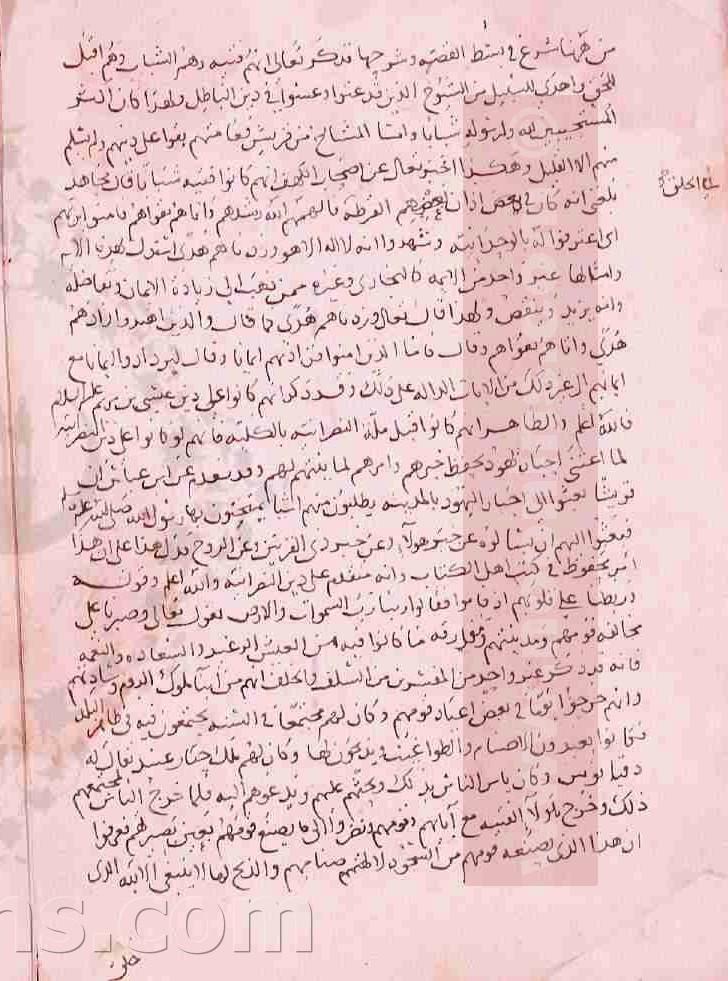 من ههنا شرع في بسط القصه وشرحها فذكر تعالى انهم فتيه وهم الشباب وهم اقبل
للحق واهدى للسبيل من الشيوخ الذين قد عتوا وعسوا في دين الباطل ولهذا كان اكثر
المستجيبين لله ولرسوله شبابا واما المشايخ من قريش فعامتهم بقوا على دينهم ولم يسلم
منهم الا القليل وهكذا اخبر تعالى عن اصحاب الكهف انهم كانوا فتيه شبابا قال مجاهد
بلغني انه كان في بعض اذان بعضهم القرطه فالهمهم الله رشدهم واتاهم تقواهم فامنوا بربهم
اي اعترفوا له بالوحدانيه وشهدوا انه لا اله الا هو وزدناهم هدى استدل بهذه الآيه
وامثالها غير واحد من الائمه كالبخاري وغيره ممن ذهب الى زيادة الايمان وتفاضله
وانه يزيد وينقص ولهذا قال تعالى وزدناهم هدى كما قال والذين اهتدوا زادهم
هدى واتاهم تقواهم وقال فاما الذين امنوا فزادتهم ايمانا وقال ليزدادوا ايمانا مع
ايمانهم الى غير ذلك من الايات الداله على ذلك وقد ذكر انهم كانوا على دين عيسى بن مريم عليه السلام
فالله اعلم والظاهر انهم كانوا قبل ملة النصرانيه بالكليه فانهم لو كانوا على دين النصرانيه
لما اعتنى احبار يهود بحفظ خبرهم وامرهم لمباينتهم لهم وقد تقدم عن ابن عباس ان
قريشا بعثوا الى احبار اليهود بالمدينه يطلبون منهم اشيا يمتحنون بها رسول الله صلى الله عليه
فبعثوا اليهم ان يسالوه عن خبر هولاء وعن خبر ذي القرنين وعن الروح فدل هذا على ان هذا
امر محفوظ في كتب اهل الكتاب وانه متقدم على دين النصرانيه والله اعلم وقوله
وربطنا على قلوبهم اذ قاموا فقالوا ربنا رب السموات والارض يقول تعالى وصبرناهم على
مخالفة قومهم ومدينتهم ومفارقه ما كانوا فيه من العيش الرغيد والسعاده والنعمه
فانه قد ذكر غير واحد من المفسرين من السلف والخلف انهم من ابنا ملوك الروم وسادتهم
وانهم خرجوا يوما في بعض اعياد قومهم وكان لهم مجتمعا في السنه يجتمعون فيه في ظاهر البلد
وكانوا يعبدون الاصنام والطواغيت ويذبحون لها وكان لهم ملك جبار عنيد يقال له
دقيانوس وكان يامر الناس بذلك ويحثهم عليهم ويدعوهم اليه فلما خرج الناس لمجتمعهم
ذلك وخرج هاولاء الفتيه مع آبائهم وقومهم ونظروا الى ما يصنع قومهم بعين بصيرتهم عرفوا
ان هذا الذي يصنعه قومهم من السجود لاصنامهم والذبح لها لا ينبغي الا لله الذي
خلق